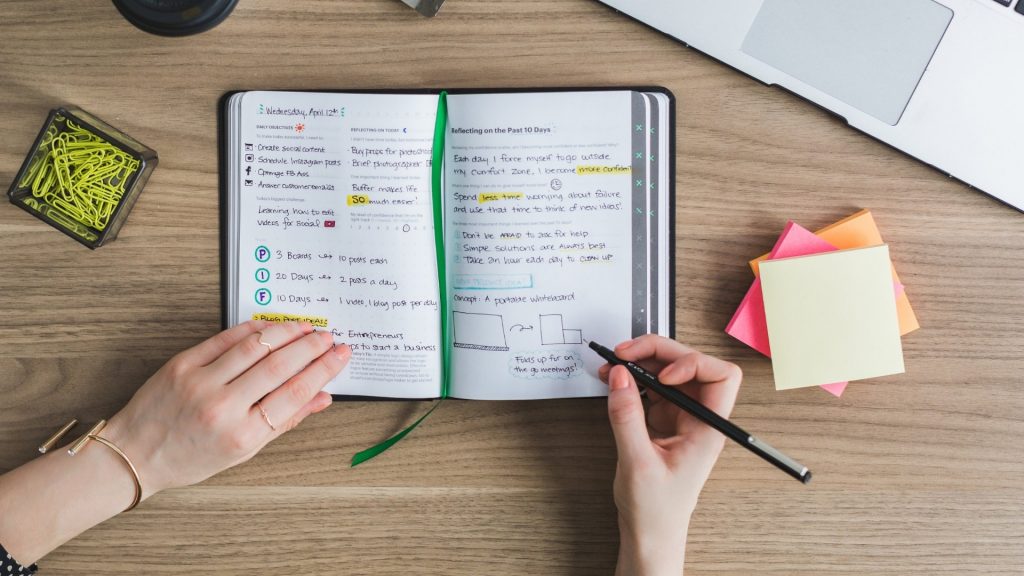 Wednesday, April 12th
DAILY OBJECTIVES
To make today successful, I need to
Create Social content
Schedule Instagram posts
Optimize FB Ads
Answer customer emails
Today's biggest challenge
Learning how to edit
videos for social
P 3 Boards → 10 posts each
I 20 Days → 2 posts a day
F 10 Days → 1 video, 1 blog post per day
BLOG POST IDEAS:
for Entrepreneurs
to start a business
REFLECTING ON TODAY
Buy props for photoshoot
Brief photographer
Buffer makes life
SO much easier!
Reflecting on the Past 10 Days
Each day I force myself to go outside
my comfort zone, I become more confident!
Spend less time worrying about failure
and use that time to think of new ideas!
1 Don't be AFRAID to ask for help
2 Simple solutions are ALWAYS best
3 Take an hour each day to CLEAN UP
Concept: A portable whiteboard
Folds up for on
the go meetings!